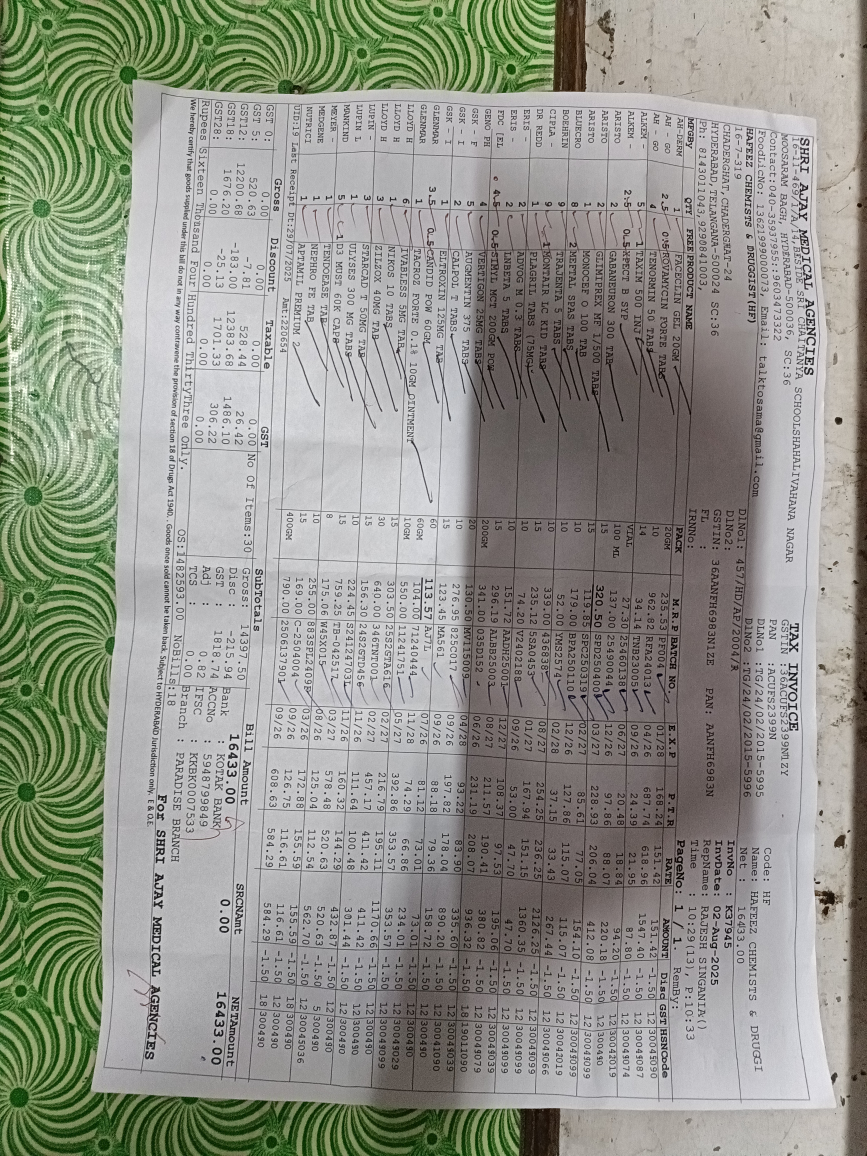 SHRI AJAY MEDICAL AGENCIES
16-11-469/1/A/14,BESI SRI CHAITANYA SCHOOLSHAHALIVAHANA NAGAR
MOOSARAM BAGH, HYDERABAD-500036, SC:36
Contact:040-35937955:9603473322
FoodLicNo: 13621999000073, Email: talktosama@gmail.com
TAX INVOICE
GSTIN :36ACUFS2399N1ZY
PAN :ACUFS2399N
DLNo1 :TG/24/02/2015-5995
DLNo2 :TG/24/02/2015-5996
Code: HF
Name: HAFEEZ CHEMISTS & DRUGGI
Net : 16433.00
HAFEEZ CHEMISTS & DRUGGIST(HF)
16-7-319
CHADERGHAT, CHADERGHAT-24
HYDERABAD, TELANGANA-500024 SC:36
Ph: 8143011043,9290841003,
DlNo1: 457/HD/AP/2004/R
DlNo2:
GSTIN: 36AANFH6983N1ZE PAN: AANFH6983N
FL :
IRNNo:
InvNo : K37945
InvDate: 02-Aug-2025
RepName: RAJESH SINGANIA()
Time : 10:29(13), P:10:33
PageNo: 1 / 1. RemBy:
MFGBy QTY FREE PRODUCT NAME PACK M.R.P BATCH NO. E X P P T R RATE AMOUNT Disc GST HSNCode
AH-DERM 1 FACECLIN GEL 20GM 20GM 235.53 PF004 01/28 168.24 151.42 151.42 -1.50 12 30045090
AH - GO 2.5 0.5 ROVAMYCIN FORTE TABS 10 962.82 RFA24013 04/26 687.74 618.96 1547.40 -1.50 12 30049087
ALKEM - 4 TENORMIN 50 TABS 14 34.14 TNB23005 09/26 24.39 21.95 87.80 -1.50 12 30049074
ALKEM - 5 1 TAXIM 500 INJ VIAL 27.30 25460138 06/27 20.48 18.84 94.20 -1.50 12 30042019
ARISTO 2.5 0.5 XPECT B SYP 100 ML 137.00 25490044 12/26 97.86 88.07 220.18 -1.50 12 300490
ARISTO 2 GABANEURON 300 TAB 15 320.50 SPD250400 03/27 228.93 206.04 412.08 -1.50 12 30049099
ARISTO 2 GLIMIPREX MF 1/500 TABS 15 119.85 SPC250319 02/27 85.61 77.05 154.10 -1.50 12 30049099
BLUECRO 1 MONOCEF O 100 TAB 10 179.00 BPA250110 12/26 127.86 115.07 115.07 -1.50 12 30042019
BOEHRIN 8 2 MEFTAL SPAS TABS 10 52.00 YMS2574 02/28 37.15 33.43 267.44 -1.50 12 30049066
CIPLA - 9 TRAJENTA 5 TABS 10 339.00 08/27 254.25 236.25 2126.25 -1.50 12 30049099
DR REDD 9 1 MONTAIR LC KID TABS 15 235.12 SA50493 01/27 167.94 151.15 1360.35 -1.50 12 30049099
ERIS - 1 PLAGRIL TABS (75MG) 10 74.20 V2402128 09/26 53.00 47.70 47.70 -1.50 12 30049099
ERIS - 2 ADVOG M 0.2 TABS 10 151.72 AADN25003 12/27 108.37 97.53 195.06 -1.50 12 30049039
FDC [EL 2 LNBETA 5 TABS 15 296.19 ALBB25003 08/27 211.57 190.41 380.82 -1.50 12 30049079
GENO PH 4.5 0.5 SIMYL MCT 200GM POW 200GM 341.00 03SD152 06/26 231.19 208.07 936.32 -1.50 18 19011090
GSK - F 4 VERTIGON 25MG TABS 20 130.50 MV115009 04/28 93.22 83.90 335.60 -1.50 12 30049039
GSK - I 5 AUGMENTIN 375 TABS 10 276.95 825C017 09/26 197.82 178.04 890.20 -1.50 12 30041090
GSK - I 2 CALPOL T TABS 15 123.45 NA561 09/26 88.18 79.36 158.72 -1.50 12 300490
GLENMAR 1 ELTROXIN 125MG TAB 60 113.57 AJ7L 07/26 81.12 73.01 73.01 -1.50 12 300490
GLENMAR 3.5 0.5 CANDID POW 60GM 60GM 104.00 71240444 11/28 74.29 66.86 234.01 -1.50 12 300490
LLOYD H 1 TACROZ FORTE 0.1% 10GM OINTMENT 10GM 550.00 11241751 05/27 392.86 353.57 353.57 -1.50 12 30049029
LLOYD H 6 IVABLESS 5MG TAB 15 303.50 25S2GTA616 02/27 216.79 195.11 1170.66 -1.50 12 30049099
LLOYD H 1 NIKOS 10 TABS 30 640.00 346TNT001 02/27 457.17 411.42 411.42 -1.50 12 300490
LUPIN - 3 ZILAZOL 40MG TAB 15 156.30 24S2GTD456 11/26 111.64 100.48 301.44 -1.50 12 300490
LUPIN L 3 STARCAD 50MG TAB 10 224.45 S241247031 11/26 160.32 144.29 432.87 -1.50 12 300490
MANKIND 1 ULYSES 300 MG TABS 15 759.25 TB-04251 03/27 578.48 520.63 520.63 -1.50 5 300490
MEYER - 5 1 D3 MUST 60K CAPS 8 175.06 W4SX015 08/26 125.04 112.54 562.70 -1.50 12 300490
MEDGENE 1 TENDOEASE TAB 10 255.00 883SPL2409B 03/26 172.88 155.59 155.59 -1.50 18 30045036
NUTRICI 1 NEPHRO FE TAB 15 169.00 C-2504004 09/26 126.75 116.61 116.61 -1.50 12 300490
1 APTAMIL PREMIUM 2 400GM 790.00 2506137901 09/26 608.63 584.29 584.29 -1.50 18 300490
UID:19 Last Receipt Dt:29/07/2025 Amt:220654
Gross Discount Taxable GST
GST 0: 0.00 0.00 0.00 0.00
GST 5: 520.63 -7.81 528.44 26.42
GST12: 12200.68 -183.00 12383.68 1486.10
GST18: 1676.20 -25.13 1701.33 306.22
GST28: 0.00 0.00 0.00 0.00
No Of Items:30
SubTotals
Gross: 14397.50
Disc : -215.94
GST : 1818.74
Adj : 0.82
TCS : 0.00
Bill Amount
16433.00
Bank : KOTAK BANK
ACCNo : 5948799849
IFSC : KKBK0007533
Branch : PARADISE BRANCH
SRCNAmt
0.00
NETAmount
16433.00
Rupees Sixteen Thousand Four Hundred ThirtyThree Only. OS:1482693.00 NoBills:18
We hereby certify that goods supplied under this bill do not in any way contravene the provision of section 18 of Drugs Act 1940. . Goods once sold cannot be taken back. Subject to HYDERABAD Jurisdiction only. E & O.E.
For SHRI AJAY MEDICAL AGENCIES